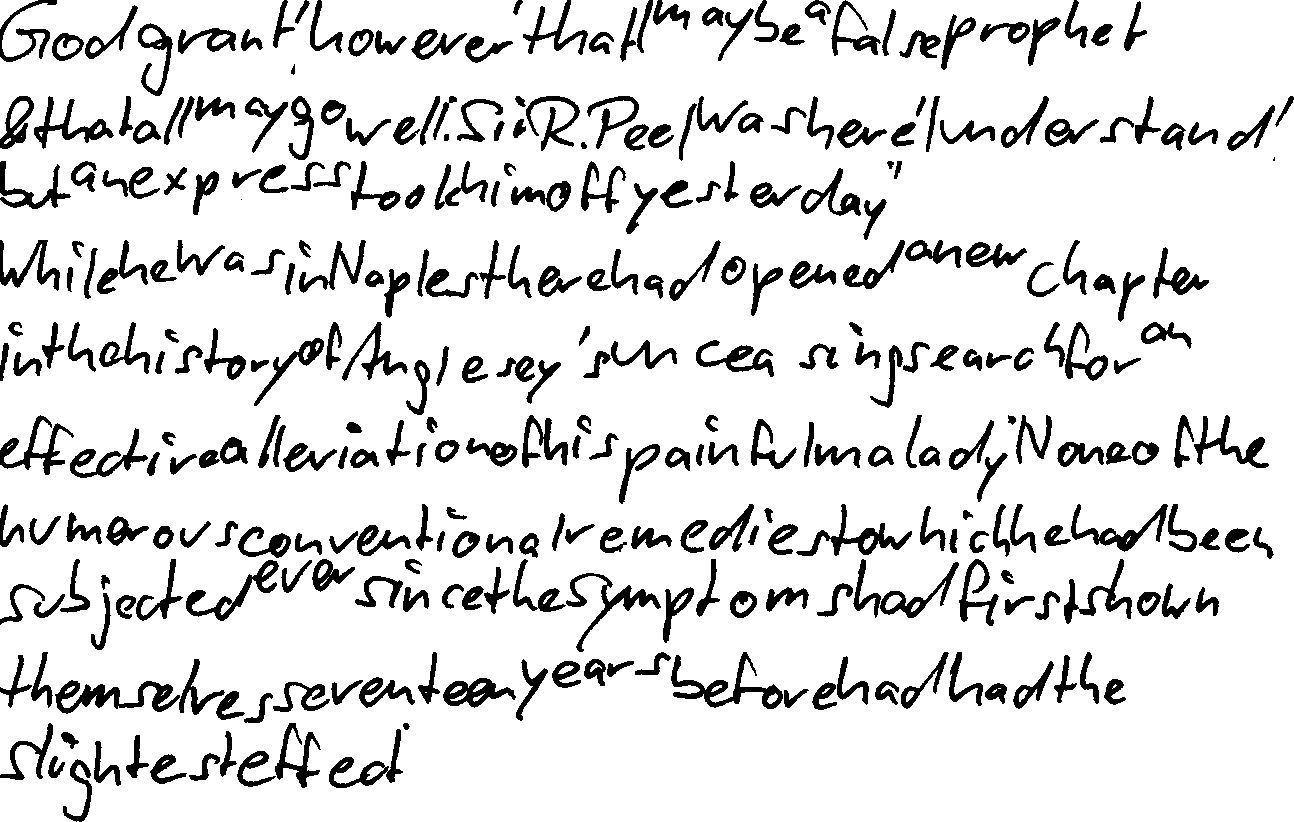 God grant, however, that I may be a false prophet
& that all may go well. Sir R. Peel was here, I understand,
but an express took him off yesterday."
While he was in Naples there had opened a new chapter
in the history of Anglesey's unceasing search for an
effective alleviation of his painful malady. None of the
humerous conventional remedies to which he had been
subjected ever since the symptoms had first shown
themselves seventeen years before had had the
slightest effect.